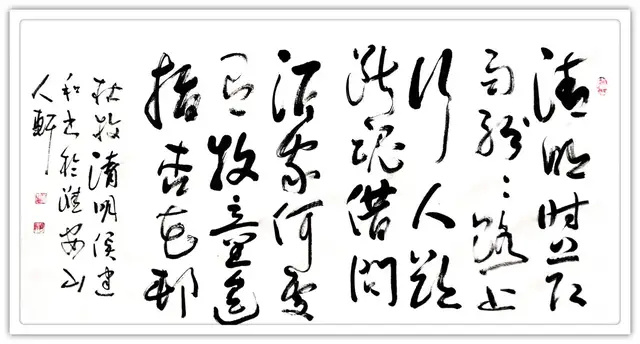 清明时节
雨纷纷路上
行人欲
断魂借问
酒家何处
有牧童遥
指杏花村
杜牧清明侯建
和书於淮安山
人轩